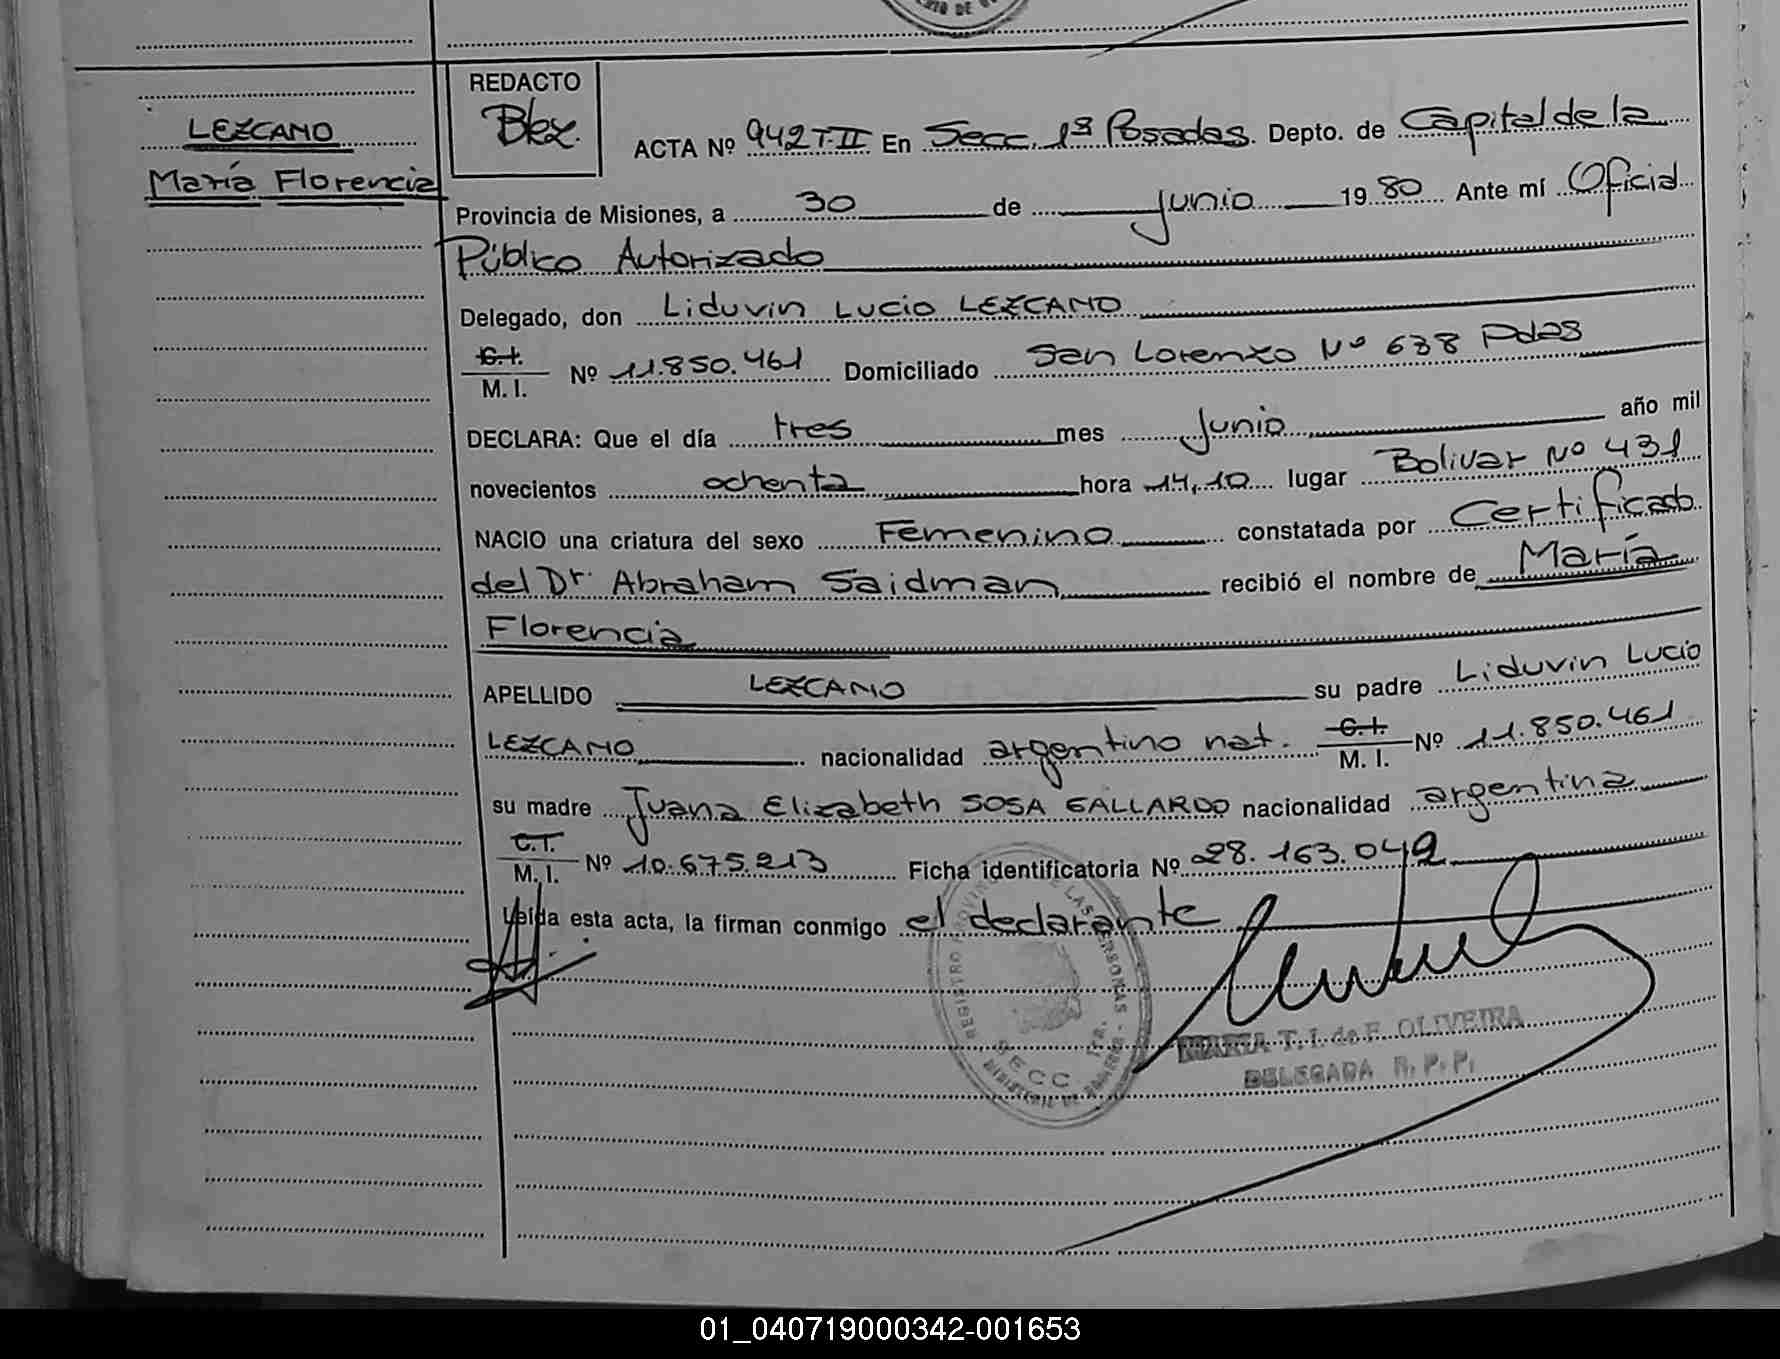 LEZCANO
María Florencia
REDACTO
ACTA Nº 942 T-II En Secc. 1ª Posadas. Depto. de Capital de la
Provincia de Misiones, a 30 de Junio 1980 Ante mí Oficial
Público Autorizado
Delegado, don Liduvin Lucio LEZCANO
C.I.
M. I. Nº 11.850.461 Domiciliado San Lorenzo Nº 638 Pdas
DECLARA: Que el día tres mes Junio año mil
novecientos ochenta hora 14,10 lugar Bolivar Nº 431
NACIO una criatura del sexo Femenino constatada por Certificado
del Dr. Abraham Saidman recibió el nombre de María
Florencia
APELLIDO LEZCANO su padre Liduvin Lucio
LEZCANO nacionalidad argentino nat. C.I. M. I. Nº 11.850.461
su madre Juana Elizabeth SOSA GALLARDO nacionalidad argentina
C.I.
M. I. Nº 10.675.213 Ficha identificatoria Nº 28.163.049
Leída esta acta, la firman conmigo el declarante
MARIA T. I. de F. OLIVEIRA
DELEGADA R. P. P.
01_040719000342-001653